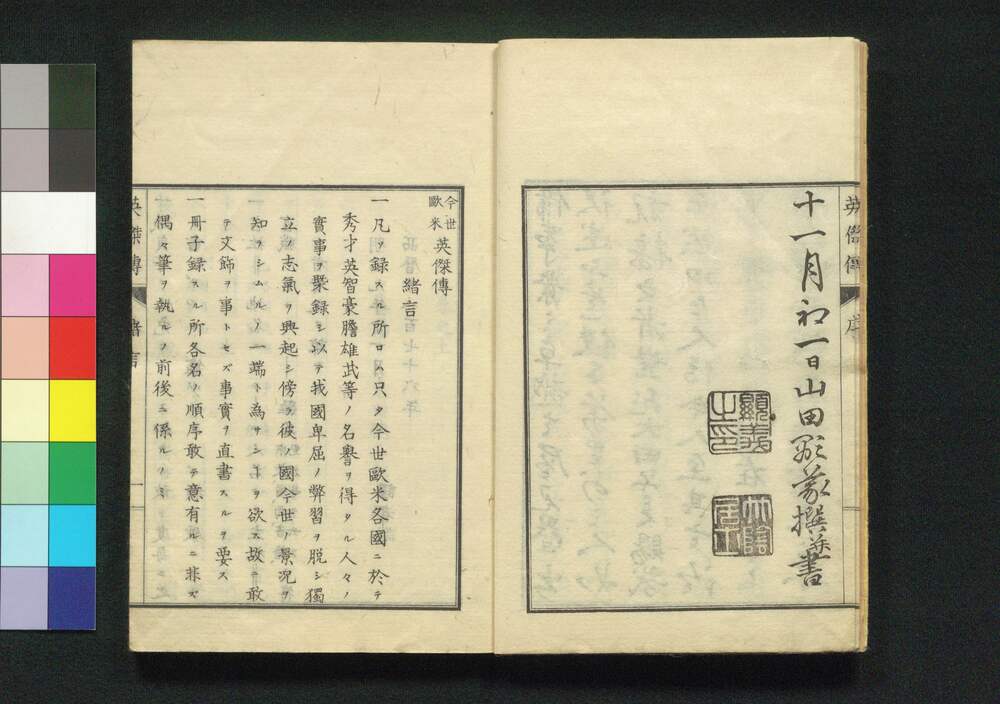 英傑傳
序
十一月初一日山田顕義撰并書
顯義之印
今世歐米英傑傳緒言
一凡ソ録スル所ロハ只タ今世歐米各國ニ於テ
秀才英智豪膽雄武等ノ名譽ヲ得タル人々ノ
實事ヲ聚録シ以テ我國卑屈ノ弊習ヲ脱シ獨
立ノ志氣ヲ興起シ傍ラ彼ノ國今世ノ景況ヲ
知ラシムルノ一端ト為サンヿヲ欲ス故ニ敢
テ文飾ヲ事トセズ事實ヲ直書スルヲ要ス
一冊子録スル所各名ノ順序敢テ意有ルニ非ズ
偶々筆ヲ執ルノ前後ニ係ルノミ
英傑傳
緒言
一